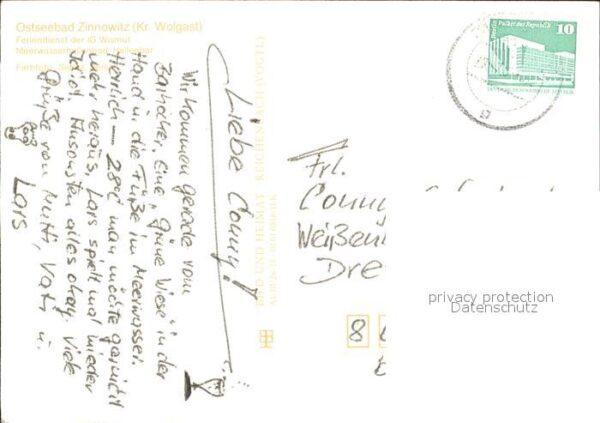 Ostseebad Zinnowitz (Kr. Wolgast)
Feriendienst der IG Wismut
Meerwasser
Farbfoto:
Liebe Conny!
Wir kommen gerade vom
Eine "Grüne Wiese" in der
Hand u. die Füße im Meerwasser.
Herrlich — 28°C man möchte garnicht
mehr heraus, Lars spielt mal wieder
Idiot. Ansonsten alles okay. Viele
Grüße von Mutti, Vati u.
Lars
BILD UND HEIMAT REICHENBACH (VOGTL)
Berlin Palast der Republik
10
Frl.
Conny
Weißen
Dre
8
privacy protection
Datenschutz